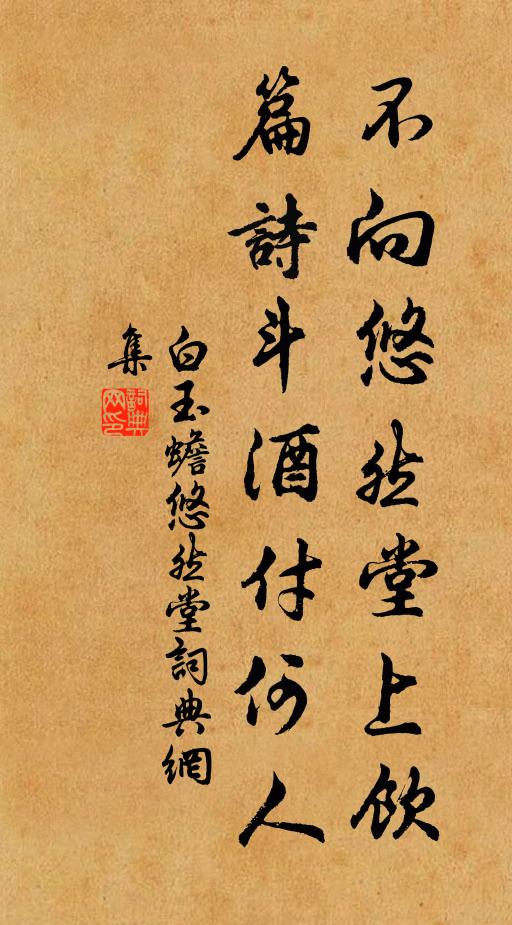 不向悠然堂上飲
篇詩斗酒付何人
白玉蟾悠然堂詞典網
集
詞典網印